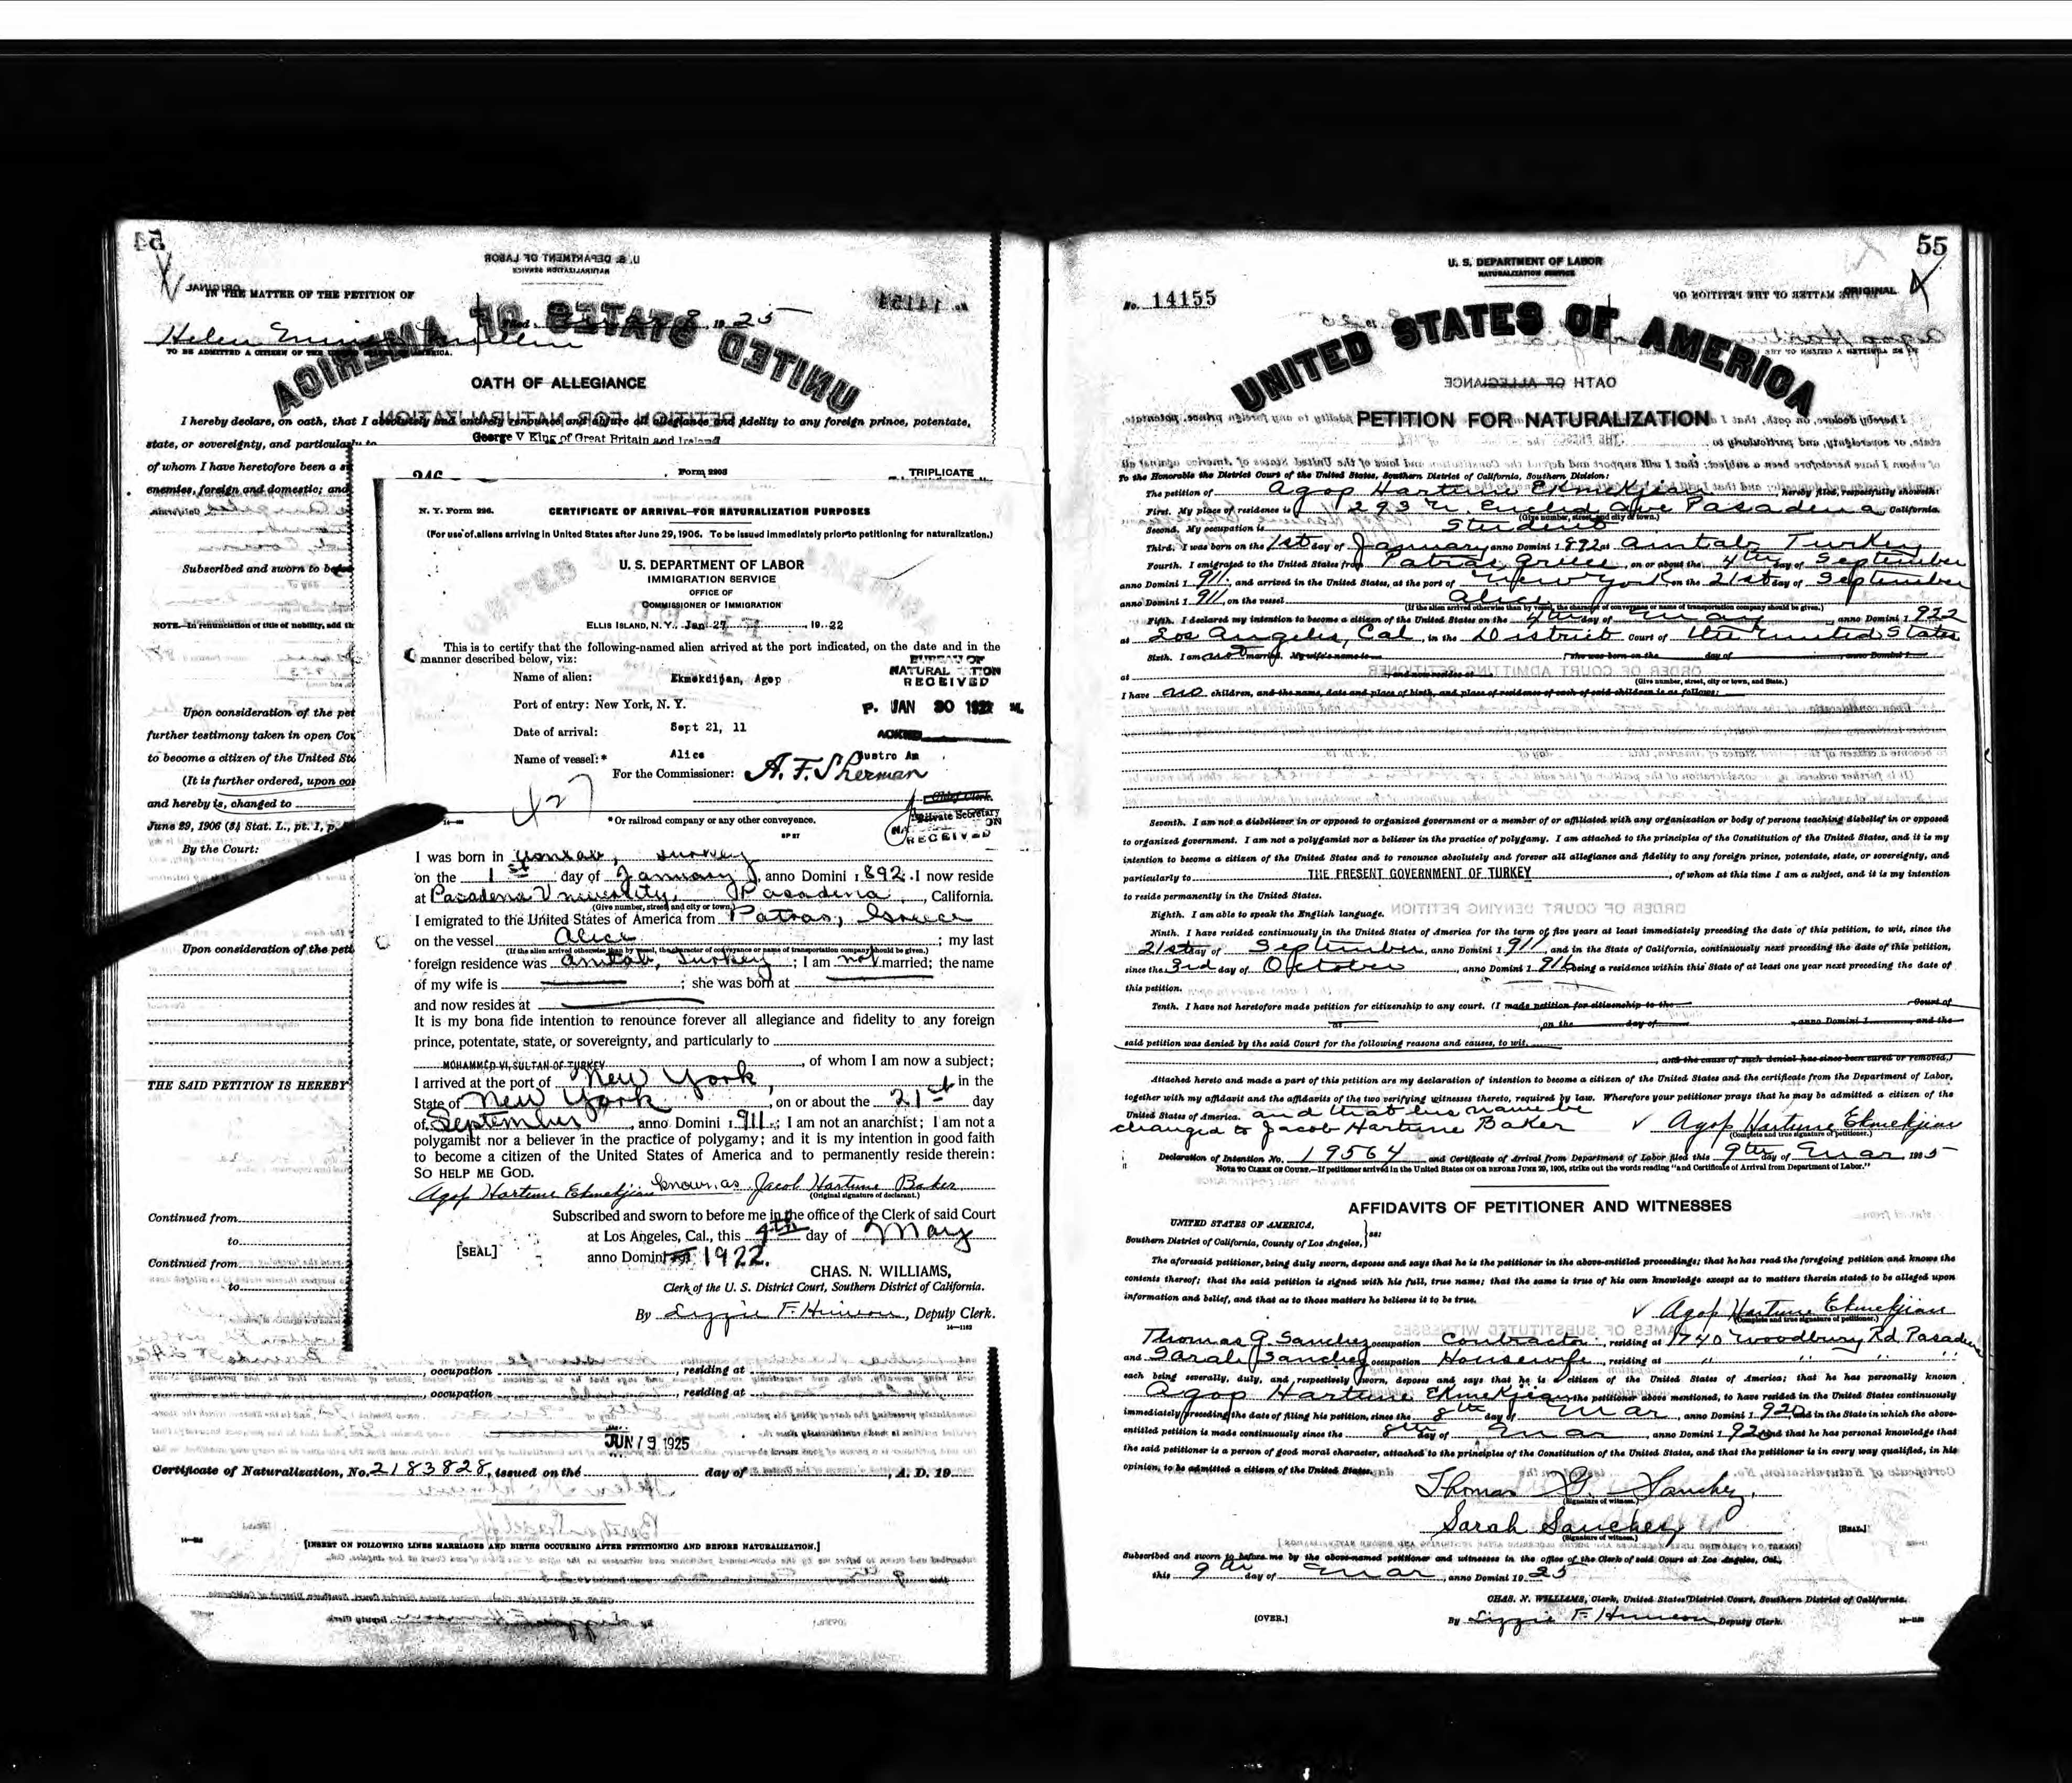 54
U. S. DEPARTMENT OF LABOR
NATURALIZATION SERVICE
ORIGINAL
IN THE MATTER OF THE PETITION OF
No. 14154
UNITED STATES OF AMERICA
Helen
Filed 1925
TO BE ADMITTED A CITIZEN OF THE UNITED STATES OF AMERICA.
OATH OF ALLEGIANCE
PETITION FOR NATURALIZATION
I hereby declare, on oath, that I absolutely and entirely renounce and abjure all allegiance and fidelity to any foreign prince, potentate,
state, or sovereignty, and particularly to
George V King of Great Britain and Ireland
of whom I have heretofore been a
enemies, foreign and domestic; and
Subscribed and sworn to
NOTE.—In renunciation of title of nobility, add
Upon consideration of the
further testimony taken in open
to become a citizen of the United
(It is further ordered, upon
and hereby is, changed to
June 29, 1906 (34 Stat. L., pt. 1, p.
By the Court:
Upon consideration of the
THE SAID PETITION IS HEREBY
Continued from
to
Continued from
to
246
Form 2203
TRIPLICATE
N. Y. Form 226.
CERTIFICATE OF ARRIVAL—FOR NATURALIZATION PURPOSES
(For use of aliens arriving in United States after June 29, 1906. To be issued immediately prior to petitioning for naturalization.)
U. S. DEPARTMENT OF LABOR
IMMIGRATION SERVICE
OFFICE OF
COMMISSIONER OF IMMIGRATION
ELLIS ISLAND, N. Y., Jan 27, 1922
This is to certify that the following-named alien arrived at the port indicated, on the date and in the
manner described below, viz:
BUREAU OF
NATURAL TION
RECEIVED
Name of alien: Ekmekdigan, Agop
Port of entry: New York, N. Y.
P. JAN 30 1922 M.
Date of arrival: Sept 21, 11
Name of vessel:* Alice Austro Am
For the Commissioner: A. F. Sherman
Chief Clerk.
Private Secretary
*Or railroad company or any other conveyance.
RECEIVED
I was born in Aintab, Turkey
on the 1st day of January, anno Domini 1892. I now reside
at Pasadena University, Pasadena, California.
(Give number, street, and city or town.)
I emigrated to the United States of America from Patras, Greece
on the vessel Alice; my last
(If the alien arrived otherwise than by vessel, the character of conveyance or name of transportation company should be given.)
foreign residence was Aintab, Turkey; I am not married; the name
of my wife is ; she was born at
and now resides at
It is my bona fide intention to renounce forever all allegiance and fidelity to any foreign
prince, potentate, state, or sovereignty, and particularly to
MOHAMMED VI, SULTAN OF TURKEY, of whom I am now a subject;
I arrived at the port of New York, in the
State of New York, on or about the 21st day
of September, anno Domini 1911; I am not an anarchist; I am not a
polygamist nor a believer in the practice of polygamy; and it is my intention in good faith
to become a citizen of the United States of America and to permanently reside therein:
SO HELP ME GOD.
Agop Hartune Ekmekjian known as Jacob Hartune Baker
(Original signature of declarant.)
Subscribed and sworn to before me in the office of the Clerk of said Court
at Los Angeles, Cal., this 4th day of May
[SEAL]
anno Domini 1922.
CHAS. N. WILLIAMS,
Clerk of the U. S. District Court, Southern District of California.
By Lizzie F. , Deputy Clerk.
14—1183
, occupation , residing at
, occupation , residing at
JUN 19 1925
Certificate of Naturalization, No. 2183828, issued on the day of , A. D. 19
[INSERT ON FOLLOWING LINES MARRIAGES AND BIRTHS OCCURRING AFTER PETITIONING AND BEFORE NATURALIZATION.]
55
U. S. DEPARTMENT OF LABOR
NATURALIZATION SERVICE
No. 14155
ORIGINAL
UNITED STATES OF AMERICA
PETITION FOR NATURALIZATION
To the Honorable the District Court of the United States, Southern District of California, Southern Division:
The petition of Agop Hartune Ekmekjian, hereby filed, respectfully showeth:
First. My place of residence is 1293 N. Euclid Ave Pasadena, California.
(Give number, street, and city or town.)
Second. My occupation is Student
Third. I was born on the 1st day of January anno Domini 1892 at Aintab Turkey
Fourth. I emigrated to the United States from Patras, Greece, on or about the 4th day of September
anno Domini 1911, and arrived in the United States, at the port of New York on the 21st day of September
anno Domini 1911, on the vessel Alice
(If the alien arrived otherwise than by vessel, the character of conveyance or name of transportation company should be given.)
Fifth. I declared my intention to become a citizen of the United States on the 4th day of May, anno Domini 1922
at Los Angeles, Cal, in the District Court of the United States
Sixth. I am not married. My wife's name is ; she was born on the day of , anno Domini 1
at , and now resides at
(Give number, street, city or town, and State.)
I have no children, and the name, date and place of birth, and place of residence of each of said children is as follows:
Seventh. I am not a disbeliever in or opposed to organized government or a member of or affiliated with any organization or body of persons teaching disbelief in or opposed
to organized government. I am not a polygamist nor a believer in the practice of polygamy. I am attached to the principles of the Constitution of the United States, and it is my
intention to become a citizen of the United States and to renounce absolutely and forever all allegiance and fidelity to any foreign prince, potentate, state, or sovereignty, and
particularly to THE PRESENT GOVERNMENT OF TURKEY, of whom at this time I am a subject, and it is my intention
to reside permanently in the United States.
Eighth. I am able to speak the English language.
Ninth. I have resided continuously in the United States of America for the term of five years at least immediately preceding the date of this petition, to wit, since the
21st day of September, anno Domini 1911, and in the State of California, continuously next preceding the date of this petition,
since the 3rd day of October, anno Domini 1916 being a residence within this State of at least one year next preceding the date of
this petition.
Tenth. I have not heretofore made petition for citizenship to any court. (I made petition for citizenship to the Court of
at , on the day of , anno Domini 1 , and the
said petition was denied by the said Court for the following reasons and causes, to wit,
, and the cause of such denial has since been cured or removed.)
Attached hereto and made a part of this petition are my declaration of intention to become a citizen of the United States and the certificate from the Department of Labor,
together with my affidavit and the affidavits of the two verifying witnesses thereto, required by law. Wherefore your petitioner prays that he may be admitted a citizen of the
United States of America. and that his name be
changed to Jacob Hartune Baker
Agop Hartune Ekmekjian
(Complete and true signature of petitioner.)
Declaration of Intention No. 19564 and Certificate of Arrival from Department of Labor filed this 9th day of Mar 1925
NOTE TO CLERK OF COURT.—If petitioner arrived in the United States ON OR BEFORE JUNE 29, 1906, strike out the words reading "and Certificate of Arrival from Department of Labor."
AFFIDAVITS OF PETITIONER AND WITNESSES
UNITED STATES OF AMERICA,
Southern District of California, County of Los Angeles, } ss:
The aforesaid petitioner, being duly sworn, deposes and says that he is the petitioner in the above-entitled proceedings; that he has read the foregoing petition and knows the
contents thereof; that the said petition is signed with his full, true name; that the same is true of his own knowledge except as to matters therein stated to be alleged upon
information and belief, and that as to those matters he believes it to be true.
Agop Hartune Ekmekjian
(Complete and true signature of petitioner.)
Thomas G Sanchez occupation Contractor, residing at 1740 Woodbury Rd. Pasadena
and Sarah Sanchez occupation Housewife, residing at " " " "
each being severally, duly, and respectively sworn, deposes and says that he is a citizen of the United States of America; that he has personally known
Agop Hartune Ekmekjian the petitioner above mentioned, to have resided in the United States continuously
immediately preceding the date of filing his petition, since the 8th day of Mar, anno Domini 1920 and in the State in which the above-
entitled petition is made continuously since the 8th day of Mar, anno Domini 1920 and that he has personal knowledge that
the said petitioner is a person of good moral character, attached to the principles of the Constitution of the United States, and that the petitioner is in every way qualified, in his
opinion, to be admitted a citizen of the United States.
Thomas G. Sanchez,
(Signature of witness.)
Sarah Sanchez
(Signature of witness.)
[SEAL]
Subscribed and sworn to before me by the above-named petitioner and witnesses in the office of the Clerk of said Court at Los Angeles, Cal.,
this 9th day of Mar, anno Domini 1925
CHAS. N. WILLIAMS, Clerk, United States District Court, Southern District of California.
[OVER.]
By Lizzie F. , Deputy Clerk.